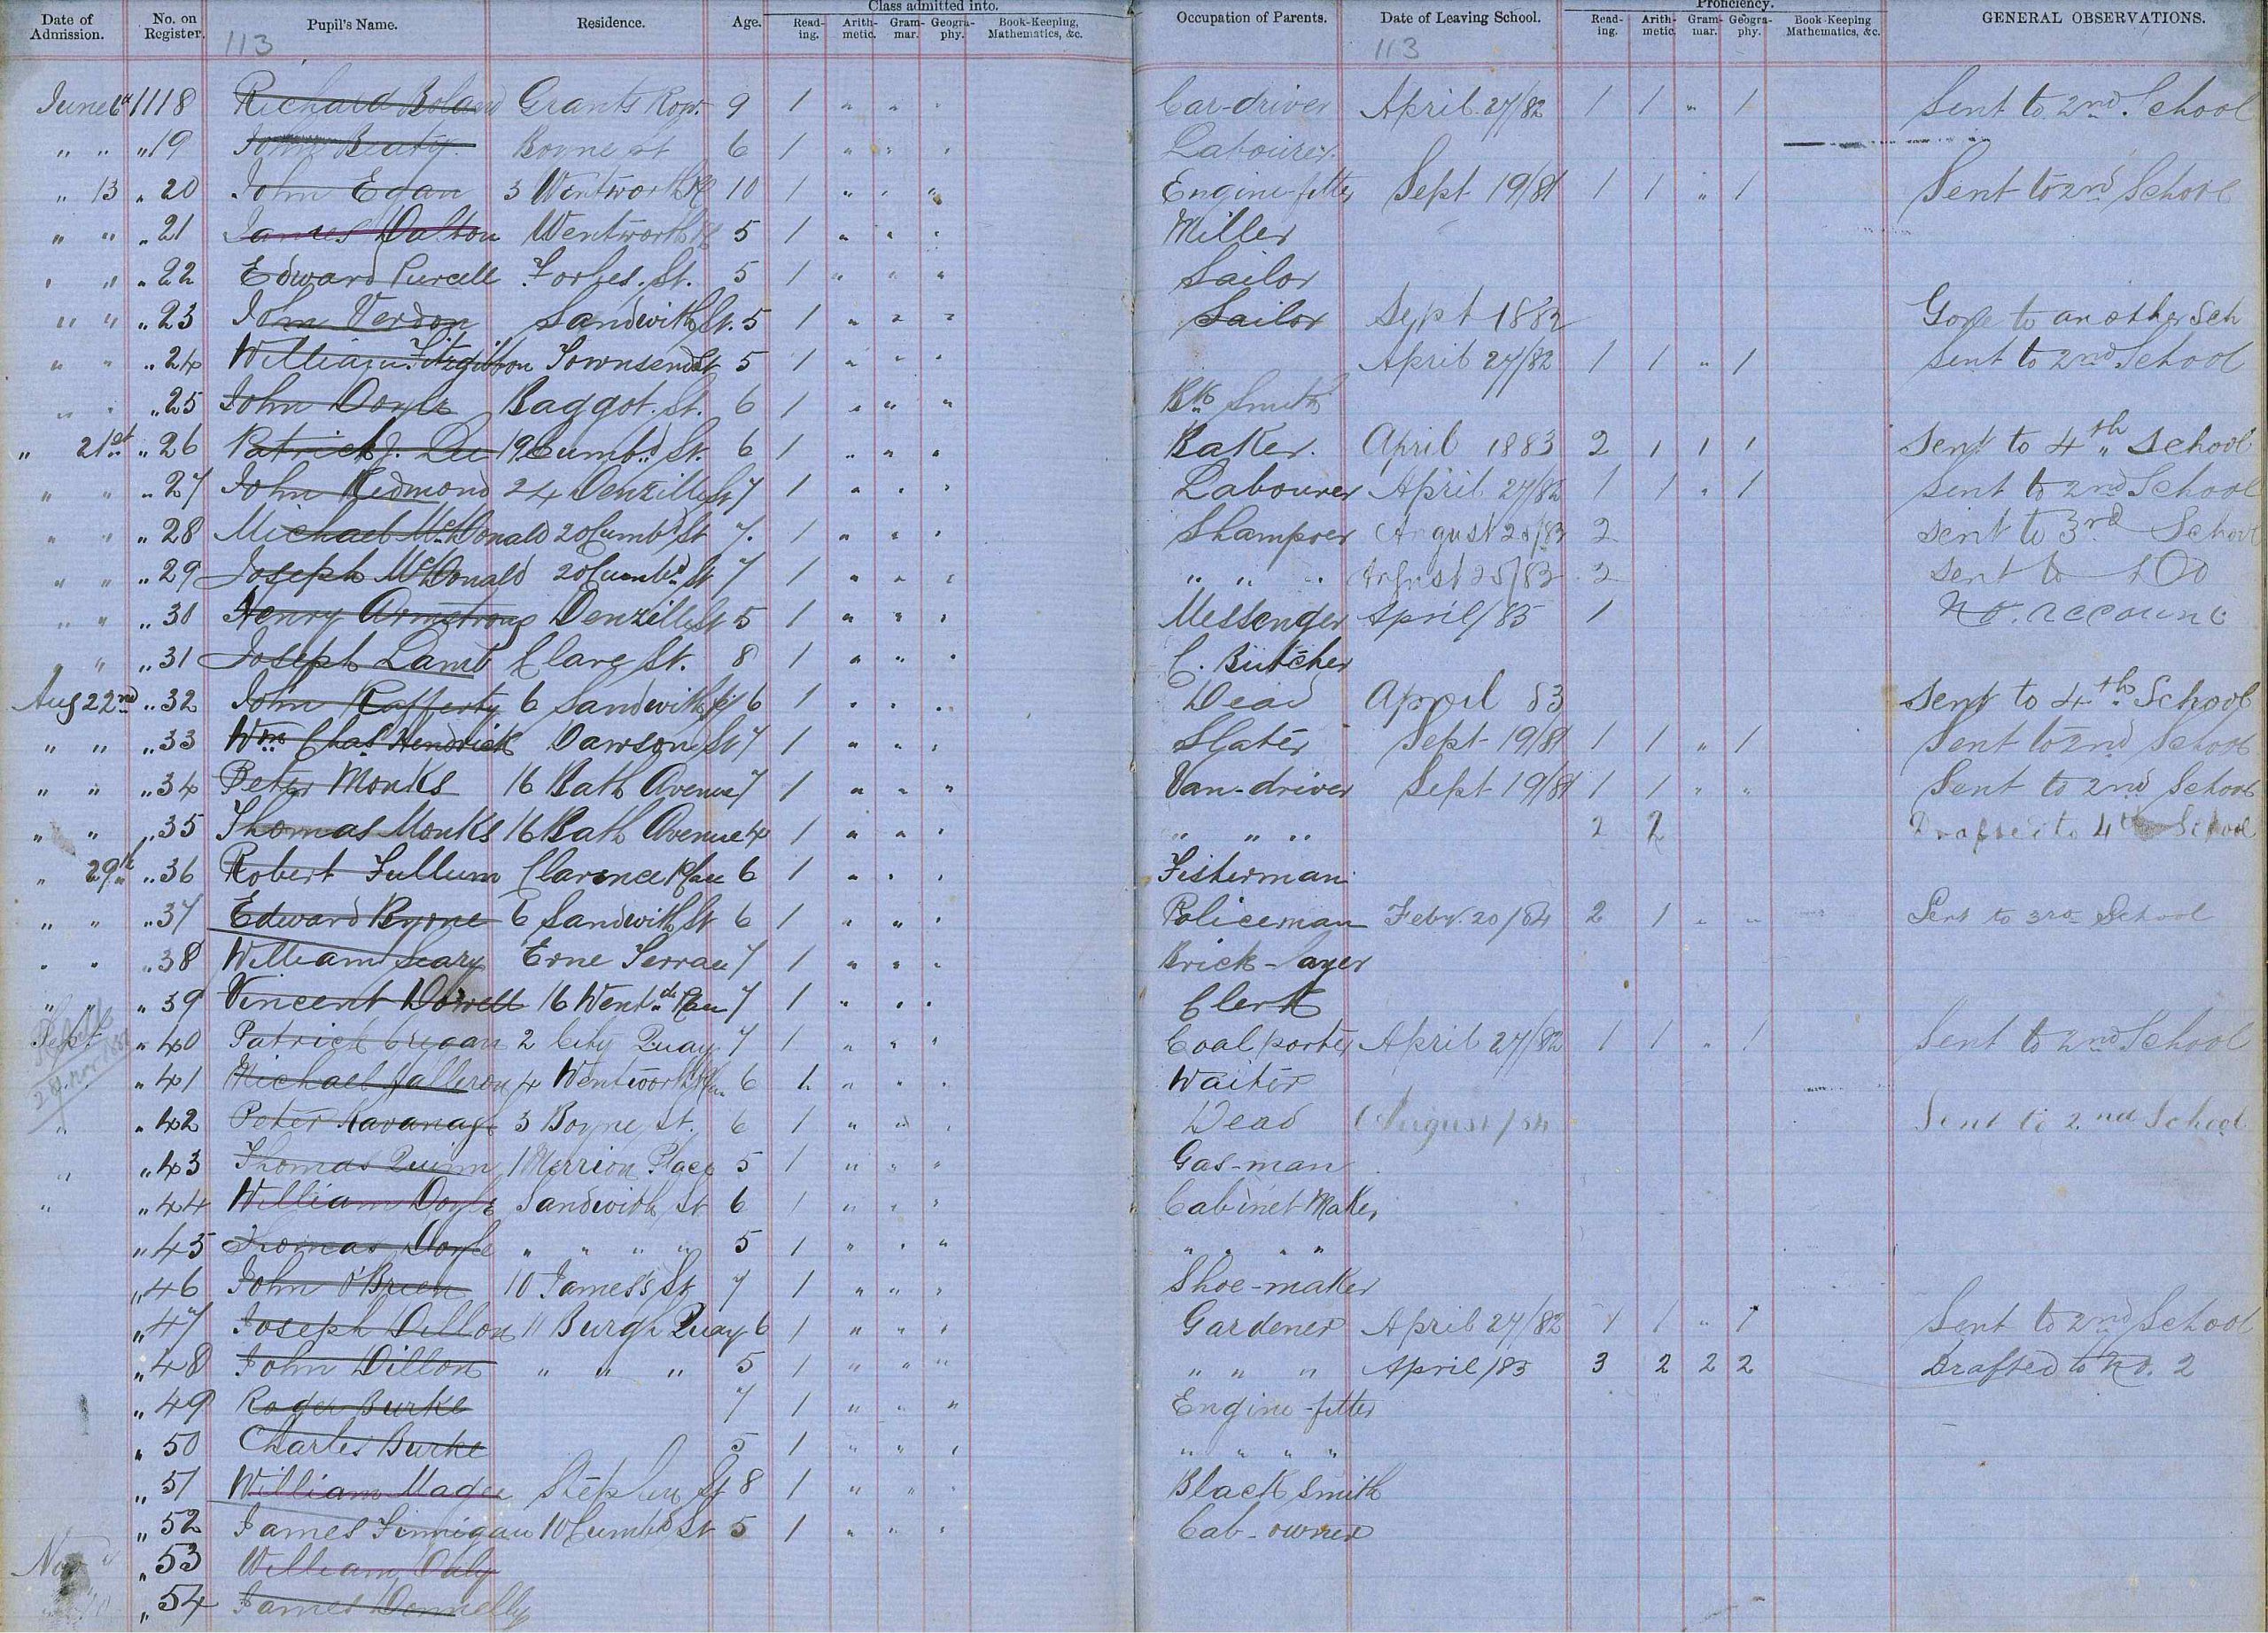 Date of Admission. No. on Register. Pupil's Name. Residence. Age. Class admitted into. Read-ing. Arith-metic. Gram-mar. Geogra-phy. Book-Keeping, Mathematics, &c. Occupation of Parents. Date of Leaving School. Proficiency. Read-ing. Arith-metic. Gram-mar. Geogra-phy. Book-Keeping Mathematics, &c. GENERAL OBSERVATIONS.
113 113
June 6th 1118 Richard Boland Grants Row. 9 1 " " " Car-driver April 27/82 1 1 " 1 Sent to 2nd. School
" " "19 John Beaty Boyne st 6 1 " " " Labourer.
" 13 " 20 John Egan 3 Wentworth Pl 10 1 " " " Engine-fitter Sept 19/81 1 1 " 1 Sent to 2nd School
" " " 21 James Dalton Wentworth Pl 5 1 " " " Miller
" " " 22 Edward Purcell Forbes. St. 5 1 " " " Sailor
" " " 23 John Verdon Sandwith St. 5 1 " " " Sailor Sept 1882 Gone to another Sch
" " " 24 William Fitzgibbon Townsend St 5 1 " " " April 27/82 1 1 " 1 Sent to 2nd School
" " " 25 John Doyle Baggot. St. 6 1 " " " Bk Smith
" 21st " 26 Patrick J. Lee 19 Cumbd St. 6 1 " " " Baker. April 1883 2 1 1 1 Sent to 4th School
" " " 27 John Redmond 24 Denzille St 7 1 " " " Labourer April 27/82 1 1 " 1 Sent to 2nd School
" " " 28 Michael McDonald 20 Cumbd St 7. 1 " " " Shampoer August 25/83 2 sent to 3rd School
" " " 29 Joseph McDonald 20 Cumbd St 7 1 " " " " " " August 25/83 2 sent to Do
" " " 30 Henry Armstrong Denzille St 5 1 " " " Messenger April/85 1 No. account
" " " 31 Joseph Lamb Clare St. 8 1 " " " C. Butcher
Aug 22nd " 32 John Rafferty 6 Sandwith St 6 1 " " " Dead April 83 Sent to 4th School
" " " 33 Wm Chas Hendrick Dawson St 7 1 " " " Slater Sept 19/81 1 1 " 1 Sent to 2nd School
" " " 34 Peter Monks 16 Bath Avenue 7 1 " " " Van-driver Sept 19/81 1 1 " " Sent to 2nd School
" " " 35 Thomas Monks 16 Bath Avenue 4 1 " " " " " " 2 2 Drafted to 4th School
" 29th " 36 Robert Fullum Clarence Place 6 1 " " " Fisherman
" " " 37 Edward Byrne 6 Sandwith St 6 1 " " Policeman Feby. 20/84 2 1 " " Sent to 3rd School
" " " 38 William Leary Erne Terrace 7 1 " " " Brick-layer
" " " 39 Vincent Dowell 16 Wentth Place 7 1 " " " Clerk
Sept " 40 Patrick Cregan 2 City Quay 7 1 " " " Coal porter April 27/82 1 1 " 1 Sent to 2nd School
" 41 Michael Halleron 4 Wentworth Place 6 1 " " " Waiter
" " 42 Peter Kavanagh 3 Boyne St. 6 1 " " " Dead August/84 Sent to 2nd School
" " 43 Thomas Quinn 1 Merrion Place 5 1 " " " Gas-man
" " 44 William Doyle Sandwith St 6 1 " " " Cabinet Maker
" 45 Thomas Doyle " " " " 5 1 " " " " " " "
" 46 John O'Brien 10 James's St 7 1 " " " Shoe-maker
" 47 Joseph Dillon 11 Burgh Quay 6 1 " " " Gardener April 27/82 1 1 " 1 Sent to 2nd School
" 48 John Dillon " " " 5 1 " " " " " " April/85 3 2 2 2 Drafted to No. 2
" 49 Roger Burke 7 1 " " " Engine-fitter
" 50 Charles Burke 5 1 " " " " " " "
" 51 William Magee Stephen St 8 1 " " " Black Smith
" 52 James Finnigan 10 Cumbd St 5 1 " " " Cab-owner
Nov " 53 William Daly
" 54 James Donnelly